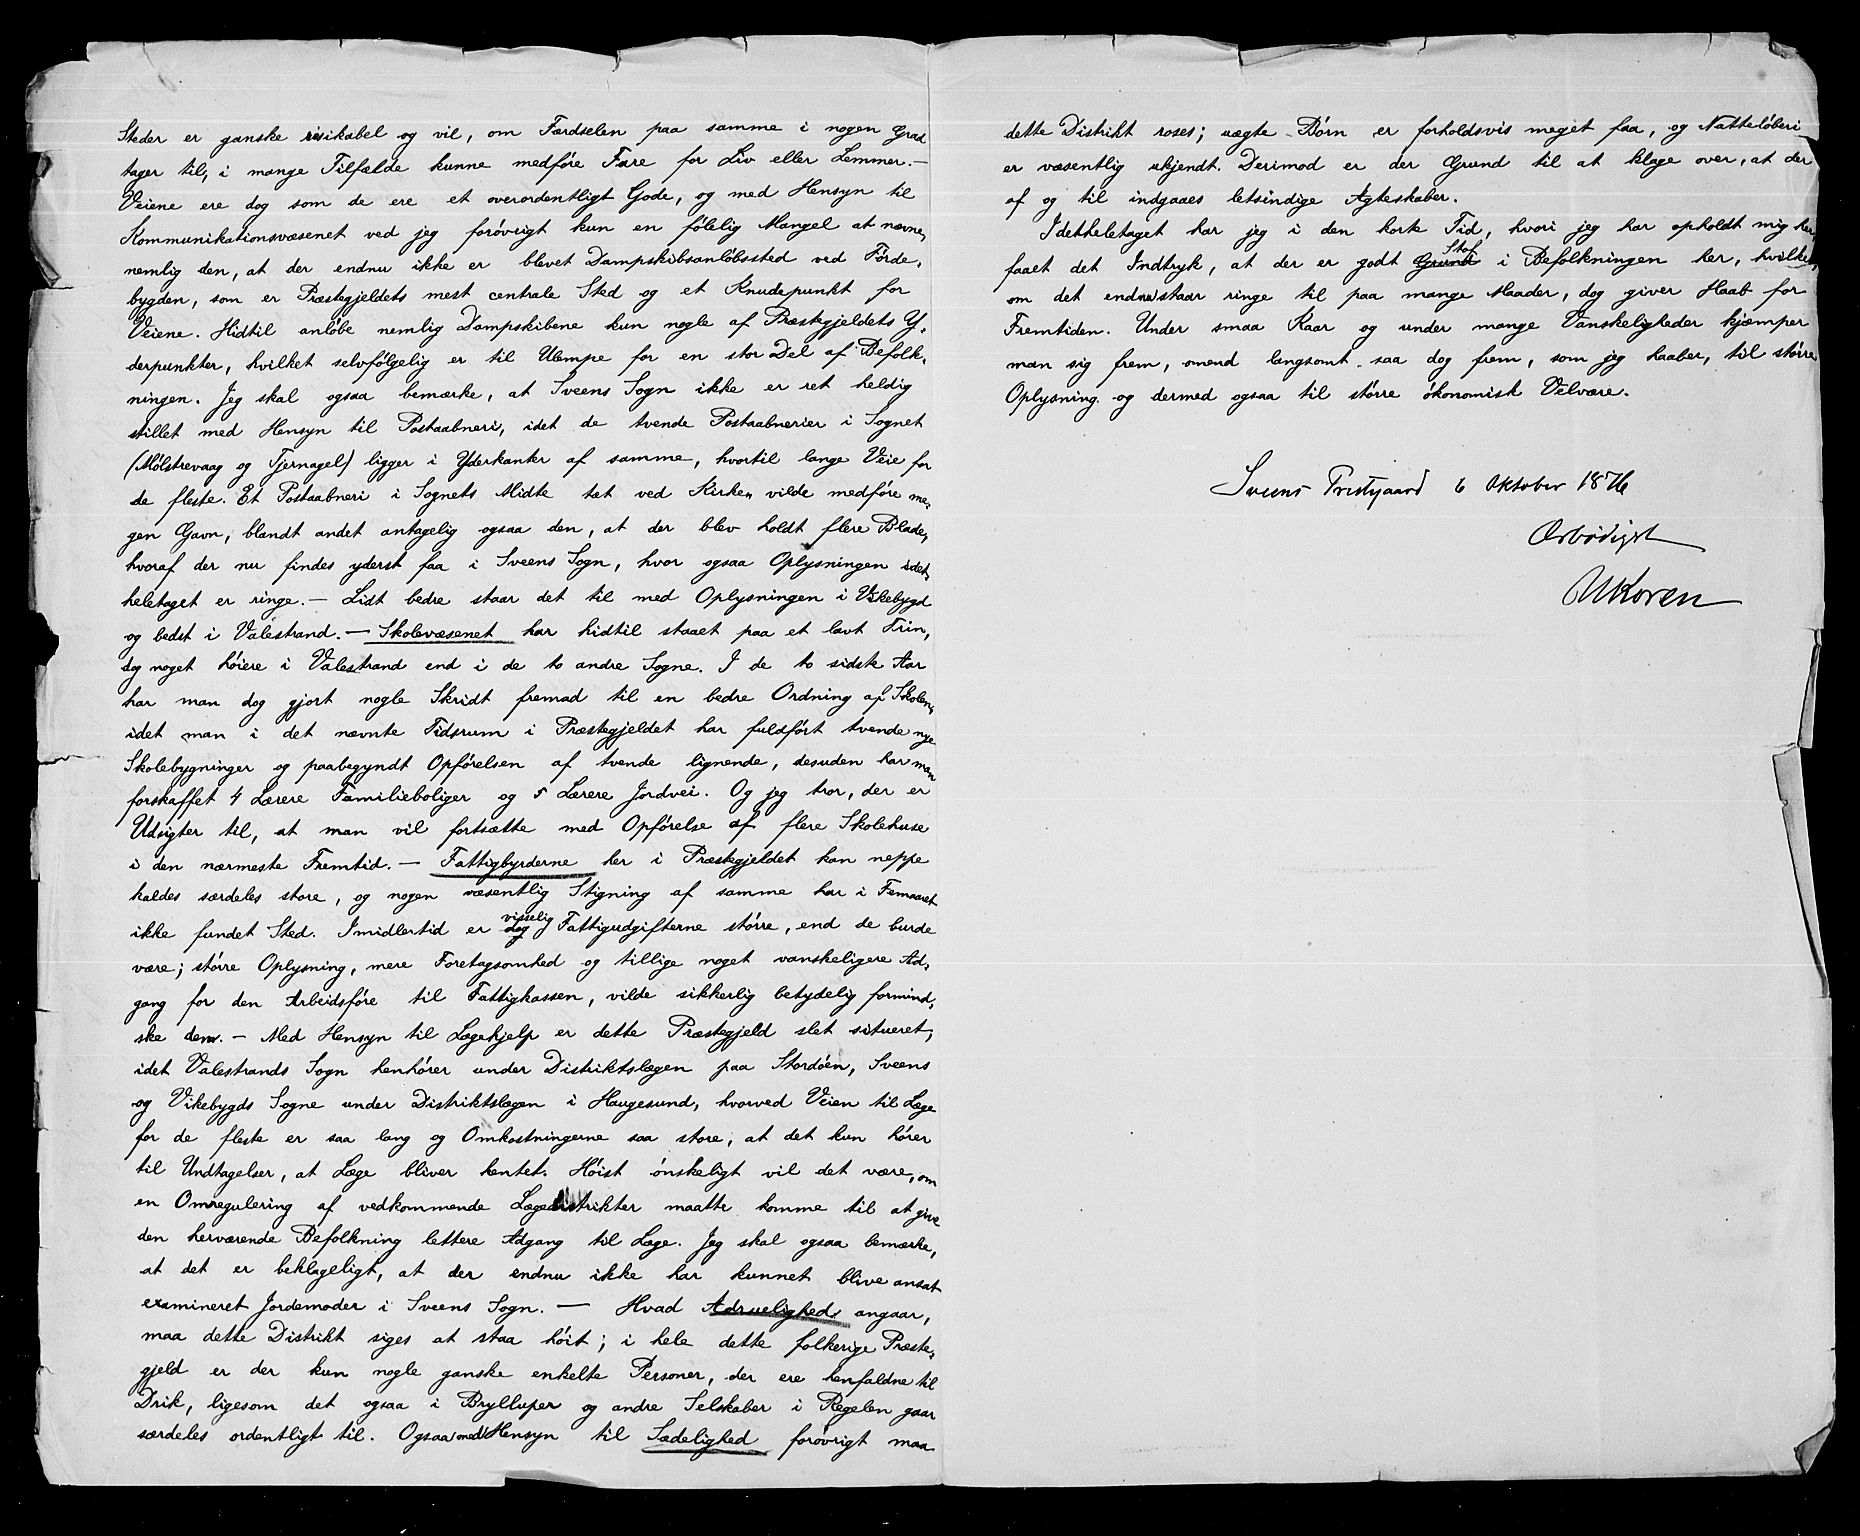 Steder er ganske risikabel og vil, om Færdselen paa samme i nogen Grad
tager til, i mange Tilfælde kunne medføre Fare for Liv eller Lemmer. —
Veiene ere dog som de ere et overordentligt Gode, og med Hensyn til
Kommunikationsvæsenet ved jeg forøvrigt kun en følelig Mangel at nævne,
nemlig den, at der endnu ikke er blevet Dampskibsanløbssted ved Førde,
bygden, som er Præstegjeldets mest centrale Sted og et Knudepunkt for
Veiene. Hidtil anløbe nemlig Dampskibene kun nogle af Præstegjeldets Y,
derpunkter, hvilket selvfølgelig er til Ulempe for en stor Del af Befolk,
ningen. Jeg skal ogsaa bemærke, at Sveens Sogn ikke er ret heldig
stillet med Hensyn til Postaabneri, idet de tvende Postaabnerier i Sognet
(Mølstrevaag og Tjernagel) ligger i Yderkanter af samme, hvortil lange Veie for
de fleste. Et Postaabneri i Sognets Midte tæt ved Kirken vilde medføre me,
gen Gavn, blandt andet antagelig ogsaa den, at der blev holdt flere Blade,
hvoraf der nu findes yderst faa i Sveens Sogn, hvor ogsaa Oplysningen idet,
heletaget er ringe. — Lidt bedre staar det til med Oplysningen i Vikebygd
og bedst i Valestrand. — Skolevæsenet har hidtil staaet paa et lavt Trin,
dog noget høiere i Valestrand end i de to andre Sogne. I de to sidste Aar
har man dog gjort nogle Skridt fremad til en bedre Ordning af Skolen,
idet man i det nævnte Tidsrum i Præstegjeldet har fuldført tvende nye
Skolebygninger og paabegyndt Opførelsen af tvende lignende, desuden har man
forskaffet 4 Lærere Familieboliger og 5 Lærere Jordvei. Og jeg tror, der er
Udsigter til, at man vil fortsætte med Opførelse af flere Skolehuse
i den nærmeste Fremtid. — Fattigbyrderne her i Præstegjeldet kan neppe
kaldes særdeles store, og nogen væsentlig Stigning af samme har i Femaaret
ikke fundet Sted. Imidlertid er dog visselig Fattigudgifterne større, end de burde
være; større Oplysning, mere Foretagsomhed og tillige noget vanskeligere Ad,
gang for den Arbeidsføre til Fattigkassen, vilde sikkerlig betydelig formind,
ske dem. — Med Hensyn til Lægehjelp er dette Præstegjeld slet situeret,
idet Valestrands Sogn henhører under Distriktslægen paa Stordøen, Sveens
og Vikebygds Sogne under Distriktslægen i Haugesund, hvorved Veien til Læge
for de fleste er saa lang og Omkostningerne saa store, at det kun hører
til Undtagelser, at Læge bliver hentet. Høist ønskeligt vil det være, om
en Omregulering af vedkommende Lægedistrikter maatte komme til at give
den herværende Befolkning lettere Adgang til Læge. Jeg skal ogsaa bemærke,
at det er beklageligt, at der endnu ikke har kunnet blive ansat
examineret Jordemoder i Sveens Sogn. — Hvad Ædruelighed angaar,
maa dette Distrikt siges at staa høit; i hele dette folkerige Præste,
gjeld er der kun nogle ganske enkelte Personer, der ere henfaldne til
Drik, ligesom det ogsaa i Brylluper og andre Selskaber i Regelen gaar
særdeles ordentligt til. Ogsaa med Hensyn til Sædelighed forøvrigt maa
dette Distrikt roses; uægte Børn er forholdsvis meget faa, og Natteløberi
er væsentlig ukjendt. Derimod er der Grund til at klage over, at der
af og til indgaaes letsindige Ægteskaber.
Idetheletaget har jeg i den korte Tid, hvori jeg har opholdt mig her
faaet det Indtryk, at der er godt Grund Stof i Befolkningen her, hvilket,
om det endnu staar ringe til paa mange Maader, dog giver Haab for
Fremtiden. Under smaa Kaar og under mange Vanskeligheder kjæmper
man sig frem, omend langsomt saa dog frem, som jeg haaber, til større
Oplysning og dermed ogsaa til større økonomisk Velvære.
Sveens Prestgaard 6 Oktober 1876
Ærbødigst
Koren